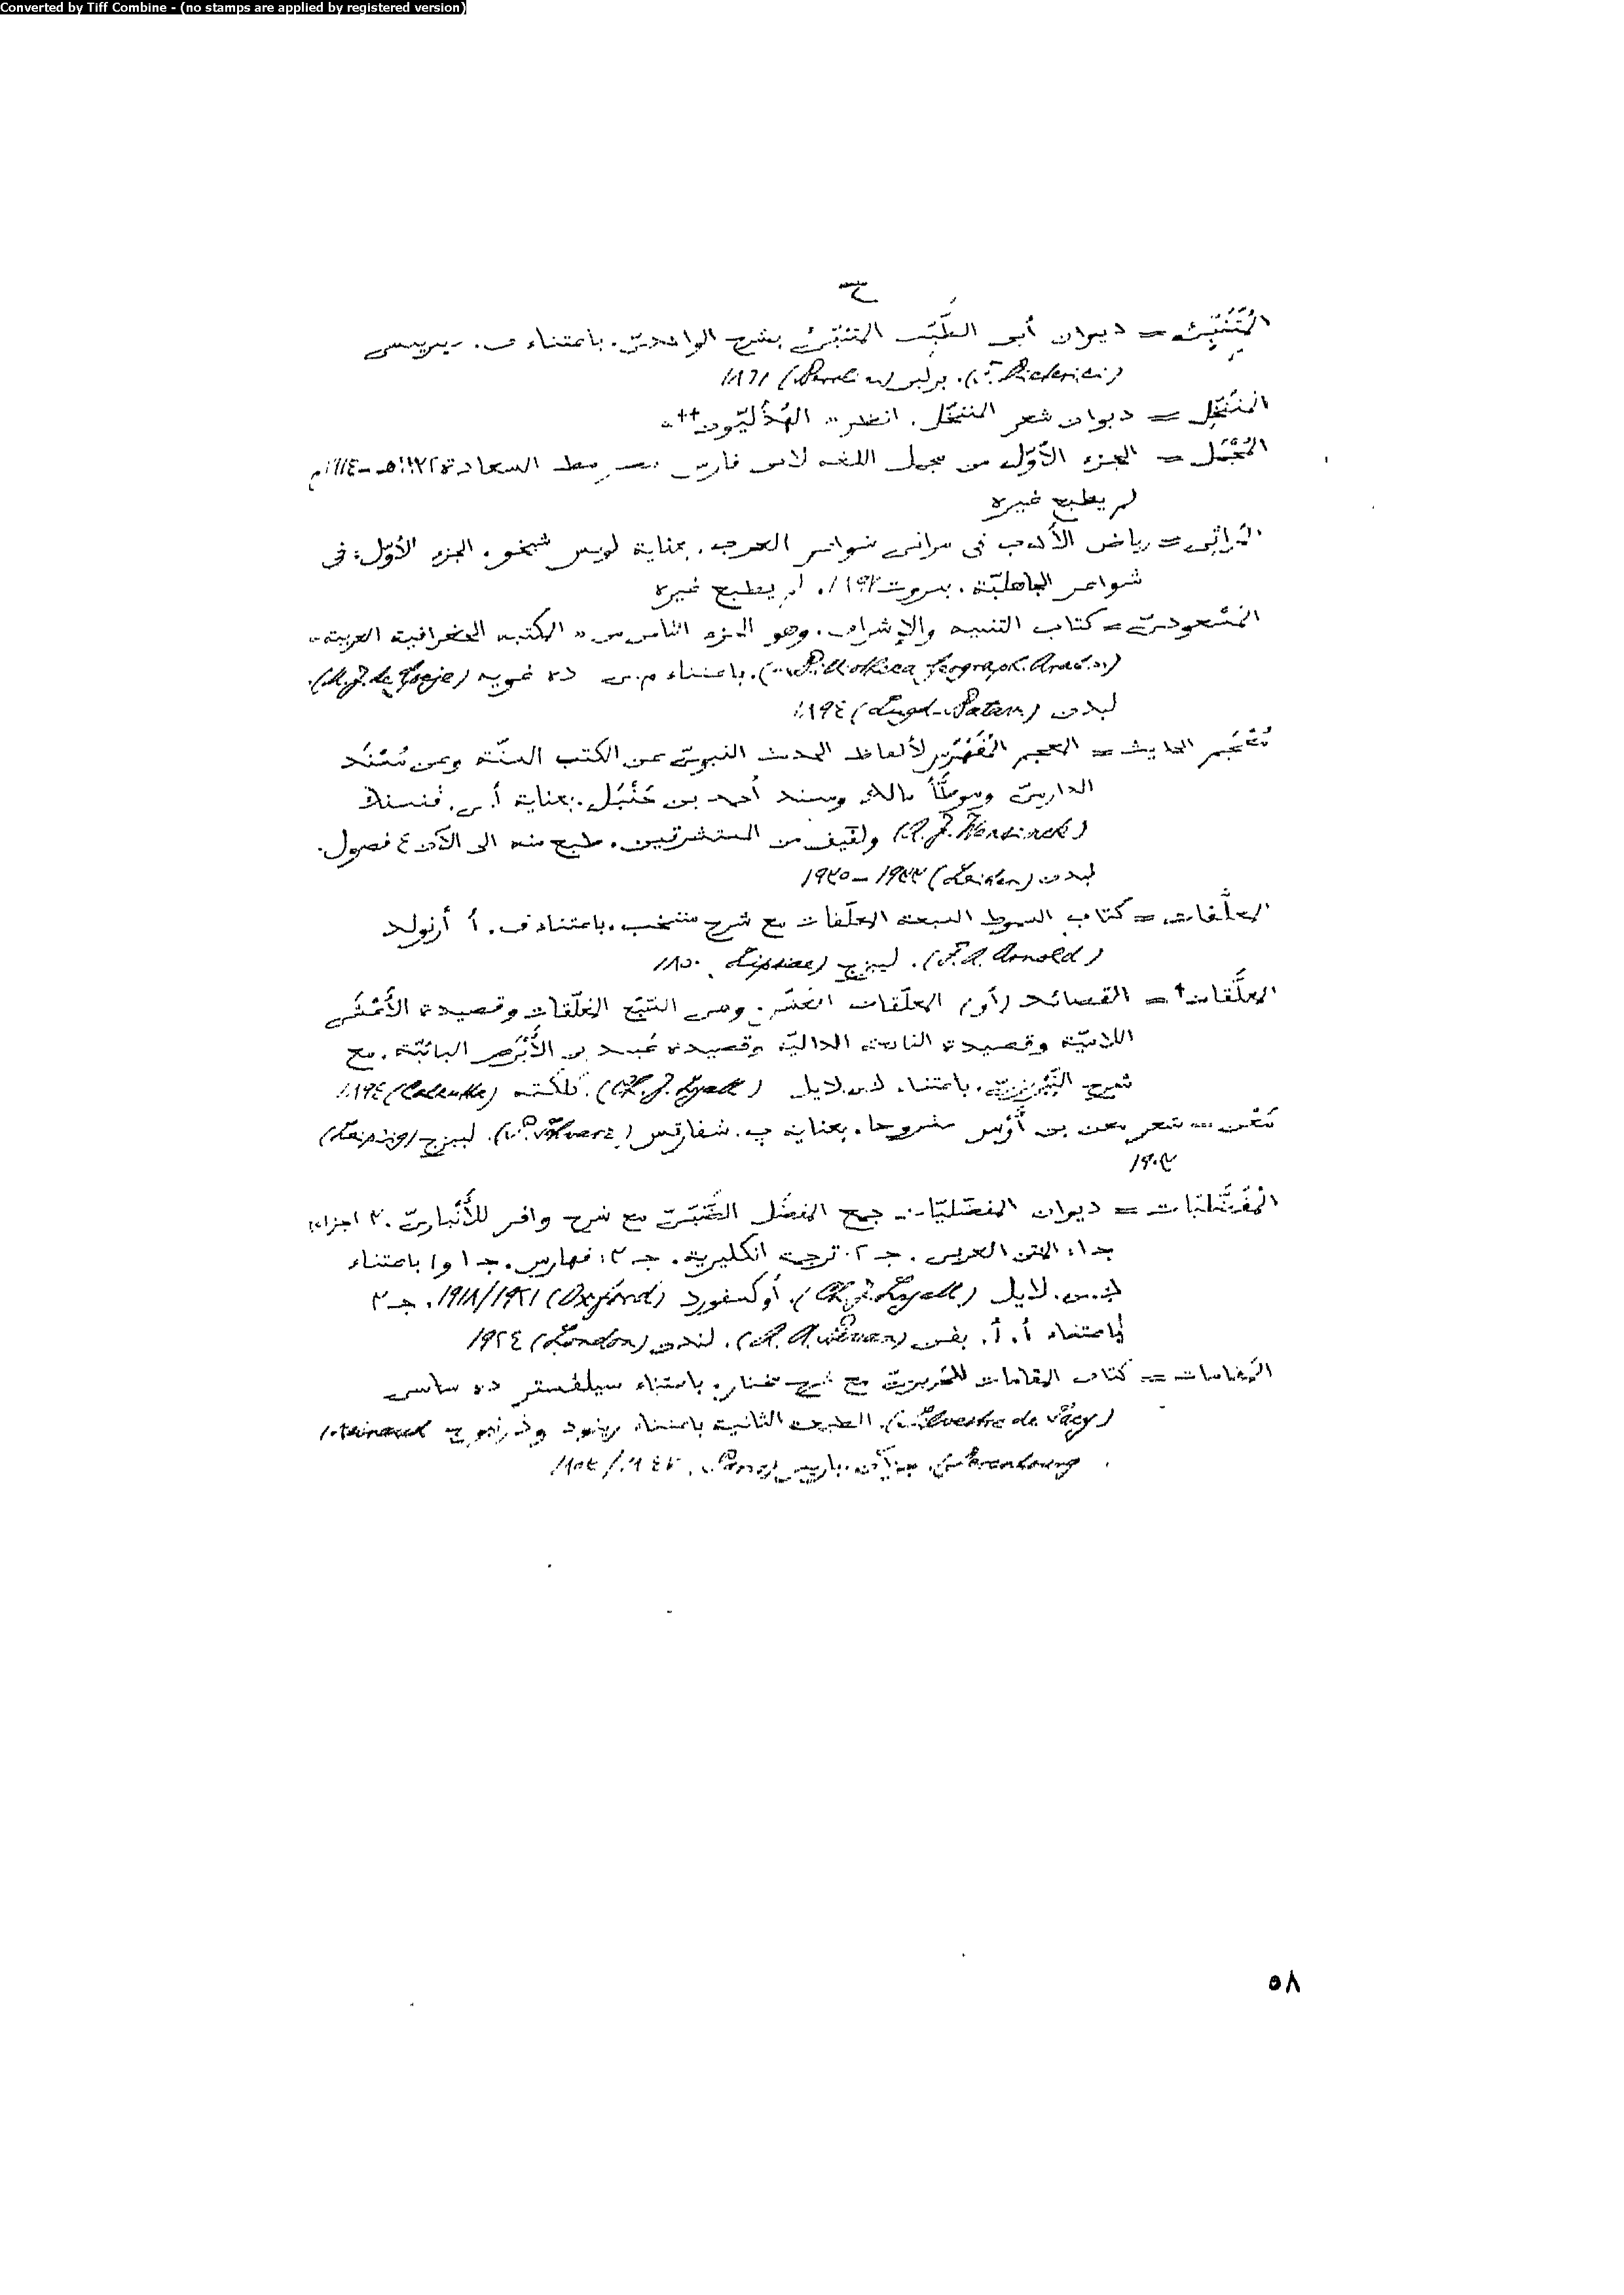 Converted by Tiff Combine - (no stamps are applied by registered version)
المُتَنَبِّئ = ديوان أبى الطَّيِّب المتنبّئ بشرح الواحدىّ. باعتناء ف.
برلين ١٨٦١
المُتَنَخِّل = ديوان شعر المتنخّل. انظر „ الهُذَلِيّون++“
المُجْمَل = الجزء الأوّل من مجمل اللغة لابن فارس السعادة
لم يطبع غيره
المَراثِى = رياض الأدب فى مراثى شواعر العرب. بعناية لويس شيخو. الجزء الأوّل: فى
شواعر الجاهليّة. بيروت ١٨٩٧. لم يطبع غيره
المَسْعودىّ = كتاب التنبيه والإشراف. وهو الجزء الثامن من „ المكتبة الجغرافية العربية“
(Bibliotheca Geograph. Arab.). باعتناء م.ى ده غويه (M.J. de Goeje).
ليدن (Lugd-Batav) ١٨٩٤
مُعْجَم الحديث = المعجم المُفَهْرَس لألفاظ الحديث النبوىّ عن الكتب الستّة وعن مُسْنَد
الدارمىّ وموطّأ مالك ومسند أحمد بن حَنْبَل. بعناية أ.ى. فنسنك
(A.J. Wensinck) ولفيف من المستشرقين. طبع منه الى الآن ٤ فصول.
ليدن (Leiden)
المعلَّقات = كتاب السموط السبعة المعلّقات مع شرح منتخب. باعتناء ف. أ أرنولد
(F.A. Arnold). ليبزج (Lipsiae ١٨٥٠
المعلَّقات+ = القصائد (أو) المعلّقات العَشْر. وهى السَّبْع المُعَلّقات وقصيدة الأَعْشَى
اللاميّة وقصيدة النابغة الداليّة وقصيدة عَبيد بن الأَبْرَص البائيّة. مع
شرح التَّبْرِيزىّ. باعتناء لايل (Ch. J. Lyall). كلكته (Calcutta) ١٨٩٤
مَعْن = شعر معن بن أَوْس مشروحا. بعناية پ. شفارتس (P. Schwarz). ليبزج (Leipzig)
١٩٠٣
المُفَضَّلِيّات = ديوان المفضّليّات جمع المفضّل الضَّبّىّ مع شرح وافر للأَنْبارىّ. ٣ اجزاء:
جـ ١: المتن العربى. جـ ٢: ترجمة انكليزية. جـ ٣: فهارس. جـ ١ و باعتناء
لايل (Ch. J. Lyall). أوكسفورد (Oxford) ١٩١٨/١٩٢١. جـ ٣
باعتناء أ. أ. بفن (A. A. Bevan). لندن (London) ١٩٢٤
المَقامات = كتاب المقامات للحريرىّ مع شرح مختار. باعتناء سيلفستر ده ساسى
(Silvestre de Sacy). الطبعة الثانية باعتناء رينود (Reinaud
Derenbourg). جزآن. باريس (Paris).
٥٨